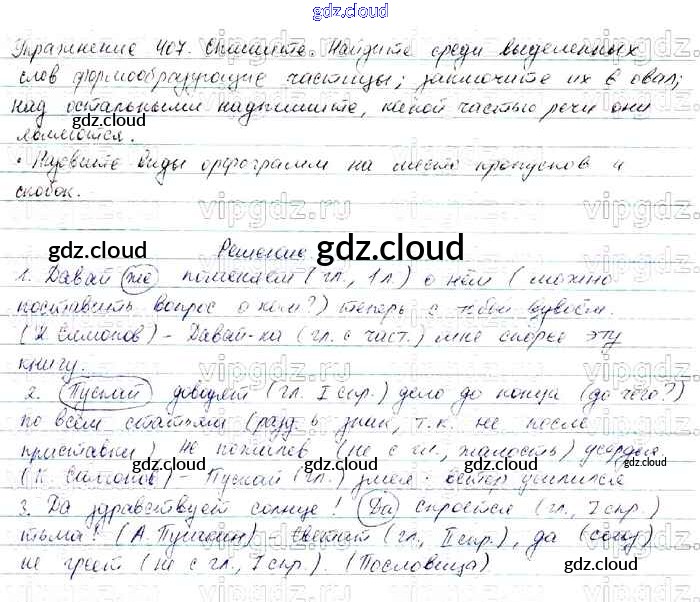 gdz.cloud
Упражнение 407. Спишите. Найдите среди выделенных
слов формообразующие частицы; заключите их в овал;
над остальными надпишите, какой частью речи они
являются.
• Назовите виды орфограмм на месте пропусков и
скобок.
Решение
1. Давай же помолчим (гл., 1 л.) о нём (можно
поставить вопрос о ком?) теперь с тобой вдвоём.
(К. Симонов) – Давай-ка (гл. с част.) мне скорее эту
книгу.
2. Пускай доводят (гл. I спр.) дело до конца (до чего?)
по всем статьям (разд. ь знак, т.к. не после
приставки) не пожалев (не с гл., жалость) усердия
(К. Симонов) – Пускай (гл.) змея – ветер усилился
3. Да здравствует солнце! Да скроется (гл., I спр.)
тьма! (А. Пушкин) светит (гл., II спр.), да (союз)
не греет (не с гл., I спр.). (Пословица)
vipgdz.ru
gdz.cloud